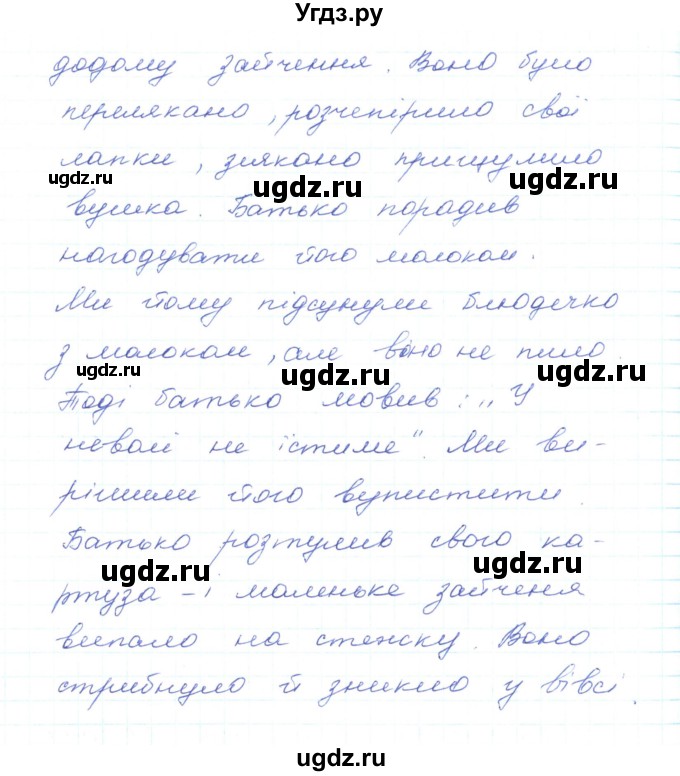 Угдз.ру
додому зайчення. Воно було
перелякано, розчепірило свої
лапки, злякано прищулило
ugdz.ru ugdz.ru ugdz.ru
вушка. Батько порадив
нагодувати його молоком.
Ми йому підсунули блюдечко
з молоком, але воно не пило.
ugdz.ru ugdz.ru ugdz.ru
Тоді батько мовив: „У
неволі не їстиме“. Ми ви-
рішили його випустити.
Батько розтулив свого ка-
ugdz.ru ugdz.ru
ртуза – і маленьке зайченя
випало на стежку. Воно
стрибнуло й зникло у вівсі.
ugdz.ru